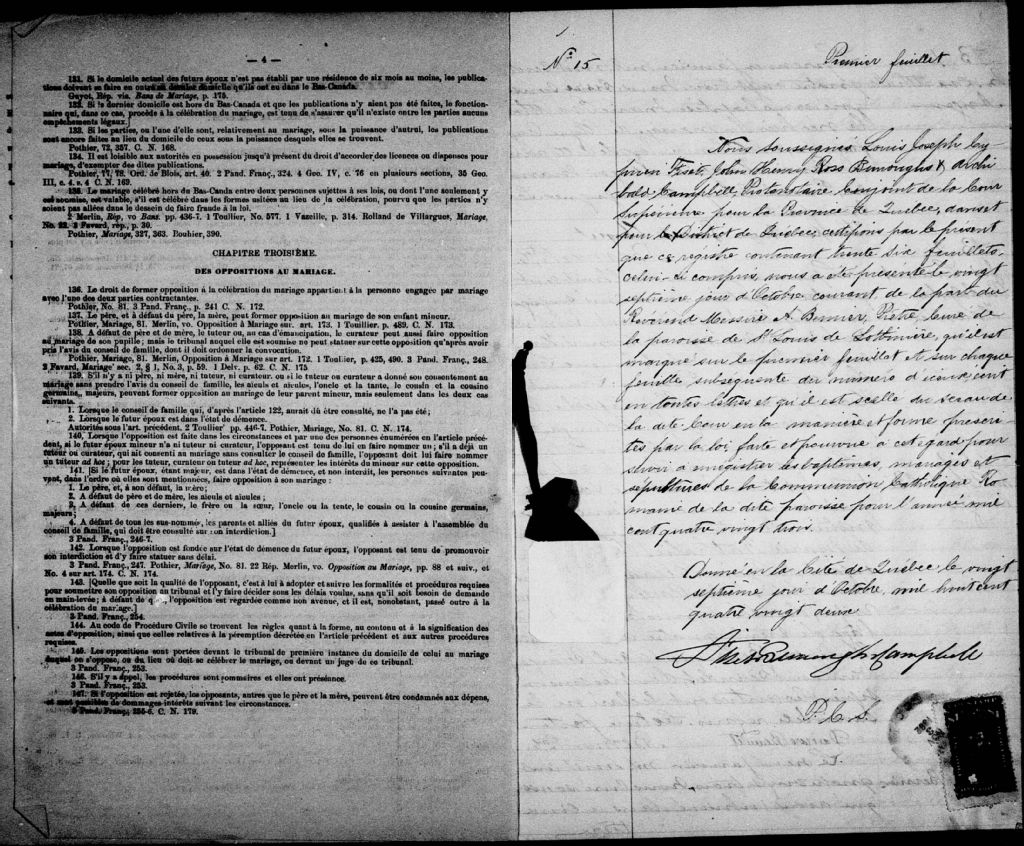 — 4 —
131. Si le domicile actuel des futurs époux n'est pas établi par une résidence de six mois au moins, les publica-
tions doivent se faire en outre au dernier domicile qu'ils ont eu dans le Bas-Canada.
Guyot, Rép. vis. Bans de Mariage, p. 175.
132. Si le dernier domicile est hors du Bas-Canada et que les publications n'y aient pas été faites, le fonction-
naire qui, dans ce cas, procède à la célébration du mariage, est tenu de s'assurer qu'il n'existe entre les parties aucuns
empêchements légaux.]
133. Si les parties, ou l'une d'elle sont, relativement au mariage, sous la puissance d'autrui, les publications
sont encore faites au lieu du domicile de ceux sous la puissance desquels elles se trouvent.
Pothier, 72, 357. C. N. 168.
134. Il est loisible aux autorités en possession jusqu'à présent du droit d'accorder des licences ou dispenses pour
mariage, d'exempter des dites publications.
Pothier, 77, 78. Ord. de Blois, art. 40. 2 Pand. Franç., 324. 4 Geo. IV, c. 76 en plusieurs sections, 35 Geo.
III, c. 4. s. 4 C. N. 169.
135. Le mariage célébré hors du Bas-Canada entre deux personnes sujettes à ses lois, ou dont l'une seulement y
est soumise, est valable, s'il est célébré dans les formes usitées au lieu de la célébration, pourvu que les parties n'y
soient pas allées dans le dessein de faire fraude à la loi.
2 Merlin, Rép, vo Bans. pp. 436-7. 1 Toullier, No. 577. 1 Vazeille, p. 314. Rolland de Villargues, Mariage,
No. 22. 3 Favard, rép., p. 30.
Pothier, Mariage, 327, 363. Bouhier, 390.
CHAPITRE TROISIÈME.
DES OPPOSITIONS AU MARIAGE.
136. Le droit de former opposition à la célébration du mariage appartient à la personne engagée par mariage
avec l'une des deux parties contractantes.
Pothier, No. 81. 3 Pand. Franç., p. 241 C. N. 172.
137. Le père, et à défaut du père, la mère, peut former opposition au mariage de son enfant mineur.
Pothier, Mariage, 81. Merlin, vo. Opposition à Mariage sur. art. 173. 1 Touillier, p. 489. C. N. 173.
138. A défaut de père et de mère, le tuteur ou, au cas d'émancipation, le curateur peut aussi faire opposition
au mariage de son pupille; mais le tribunal auquel elle est soumise ne peut statuer sur cette opposition qu'après avoir
pris l'avis du conseil de famille, dont il doit ordonner la convocation.
Pothier, Mariage, 81. Merlin, Opposition à Mariage sur art. 172. 1 Toullier, p. 425, 490. 3 Pand. Franç., 248.
3 Favard, Mariage sec. 2, § 1, No. 3, p. 59. 1 Delv. p. 62. C. N. 175
139. S'il n'y a ni père, ni mère, ni tuteur, ni curateur, ou si le tuteur ou curateur a donné son consentement au
mariage sans prendre l'avis du conseil de famille, les aïeuls et aïeules, l'oncle et la tante, le cousin et la cousine
germains, majeurs, peuvent former opposition au mariage de leur parent mineur, mais seulement dans les deux cas
suivants.
1. Lorsque le conseil de famille qui, d'après l'article 122, aurait dû être consulté, ne l'a pas été;
2. Lorsque le futur époux est dans l'état de démence.
Autorités sous l'art. précédent. 2 Toullier pp. 446-7. Pothier, Mariage, No. 81. C. N. 174.
140. Lorsque l'opposition est faite dans les circonstances et par une des personnes énumérées en l'article précé-
dent, si le futur époux mineur n'a ni tuteur ni curateur, l'opposant est tenu de lui en faire nommer un; s'il a déjà un
tuteur ou curateur, qui ait consenti au mariage sans consulter le conseil de famille, l'opposant doit lui faire nommer
un tuteur ad hoc; pour les tuteur, curateur ou tuteur ad hoc, représenter les intérêts du mineur sur cette opposition.
141. [Si le futur époux, étant majeur, est dans l'état de démence, et non interdit, les personnes suivantes peu-
vent, dans l'ordre où elles sont mentionnées, faire opposition à son mariage:
1. Le père, et, à son défaut, la mère;
2. A défaut de père et de mère, les aïeuls et aïeules;
3. A défaut de ces derniers, le frère ou la sœur, l'oncle ou la tente, le cousin ou la cousine germains,
majeurs;
4. A défaut de tous les sus-nommés, les parents et alliés du futur époux, qualifiés à assister à l'assemblée du
conseil de famille, qui doit être consulté sur son interdiction.]
3 Pand. Franç., 246-7.
142. Lorsque l'opposition est fondée sur l'état de démence du futur époux, l'opposant est tenu de promouvoir
son interdiction et d'y faire statuer sans délai.
3 Pand. Franç., 247. Pothier, Mariage, No. 81. 22 Rép. Merlin, vo. Opposition au Mariage, pp. 88 et suiv., et
No. 4 sur art. 174. C. N. 174.
143. [Quelle que soit la qualité de l'opposant, c'est à lui à adopter et suivre les formalités et procédures requises
pour soumettre son opposition au tribunal et l'y faire décider sous les délais voulus, sans qu'il soit besoin de demande
en main-levée; à défaut de quoi, l'opposition est regardée comme non avenue, et il est, nonobstant, passé outre à la
célébration du mariage.]
3 Pand. Franç., 254.
144. Au code de Procédure Civile se trouvent les règles quant à la forme, au contenu et à la signification des
actes d'opposition, ainsi que celles relatives à la péremption décrétée en l'article précédent et aux autres procédures
requises.
145. Les oppositions sont portées devant le tribunal de première instance du domicile de celui au mariage
duquel on s'oppose, ou du lieu où doit se célébrer le mariage, ou devant un juge de ce tribunal.
3 Pand. Franç., 253.
146. S'il y a appel, les procédures sont sommaires et elles ont préséance.
3 Pand. Franç., 253.
147. Si l'opposition est rejetée, les opposants, autres que le père et la mère, peuvent être condamnés aux dépens,
et sont passibles de dommages-intérêts suivant les circonstances.
3 Pand. Franç., 255-6. C. N. 179.
No 15
Premier feuillet
Nous soussignés Louis Joseph Cy-
prien Fiset, John Henry Ross Burroughs & Archi-
bald Campbell, Protonotaire Conjoint de la Cour
Supérieure pour la Province de Québec, dans et
pour le District de Québec, certifions par le présent
que ce registre contenant trente six feuillets,
celui-ci compris, nous a été présenté le vingt
septième jour d'Octobre courant, de la part du
Révérend Messire A. Bernier, Prêtre Curé de
la paroisse de St Louis de Lotbinière, qu'il est
marqué sur le premier feuillet et sur chaque
feuille subséquente du numéro d'iceux écrit
en toutes lettres et qu'il est scellé du sceau de
la dite Cour en la manière et forme prescri-
tes par la loi, faite et pourvue à cet égard pour
servir à enregistrer les baptêmes, mariages et
sépultures de la Communion Catholique Ro-
maine de la dite paroisse pour l'année mil
huit cent quatre vingt trois.
Donné en la Cité de Québec le vingt
septième jour d'Octobre, mil huit cent
quatre vingt deux
Fiset Burroughs Campbell
P. C. S.